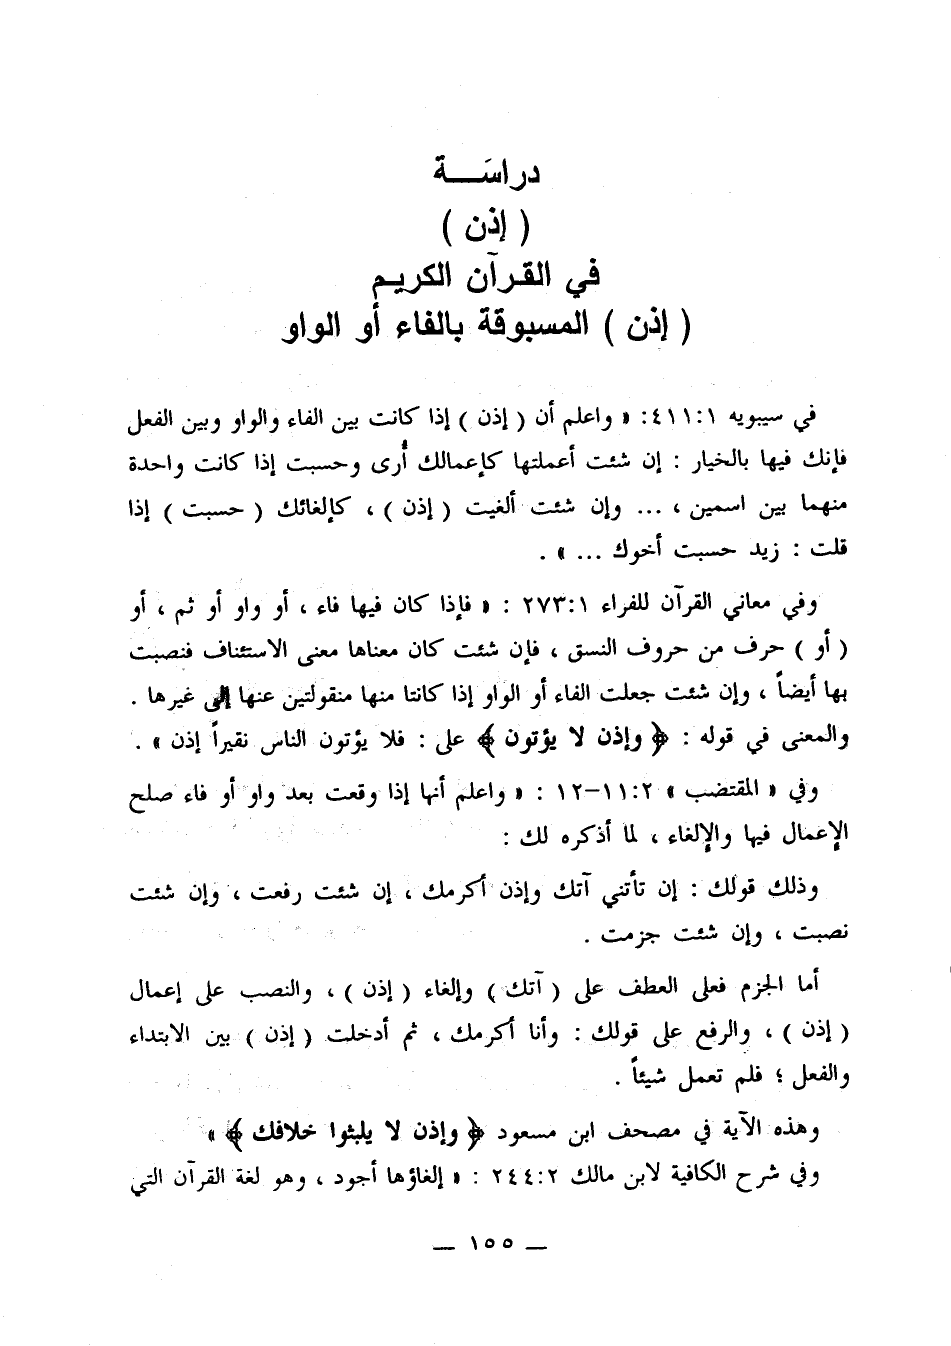 دراسَـــة
( إذن )
في القرآن الكريم
( إذن ) المسبوقة بالفاء أو الواو
في سيبويه ٤١١:١: « واعلم أن ( إذن ) إذا كانت بين الفاء والواو وبين الفعل
فإنك فيها بالخيار : إن شئت أعملتها كإعمالك أُرى وحسبت إذا كانت واحدة
منهما بين اسمين ، ... وإن شئت ألغيت ( إذن ) ، كإلغائك ( حسبت ) إذا
قلت : زيد حسبت أخوك ... » .
وفي معاني القرآن للفراء ٢٧٣:١ : « فإذا كان فيها فاء ، أو واو أو ثم ، أو
( أو ) حرف من حروف النسق ، فإن شئت كان معناها معنى الاستئناف فنصبت
بها أيضاً ، وإن شئت جعلت الفاء أو الواو إذا كانتا منها منقولتين عنها إلى غيرها .
والمعنى في قوله : ﴿ وإذن لا يؤتون ﴾ على : فلا يؤتون الناس نقيراً إذن » .
وفي « المقتضب » ١١:٢–١٢ : « واعلم أنها إذا وقعت بعد واو أو فاء صلح
الإعمال فيها والإلغاء ، لما أذكره لك :
وذلك قولك : إن تأتني آتك وإذن أكرمك ، إن شئت رفعت ، وإن شئت
نصبت ، وإن شئت جزمت .
أما الجزم فعلى العطف على ( آتك ) وإلغاء ( إذن ) ، والنصب على إعمال
( إذن ) ، والرفع على قولك : وأنا أكرمك ، ثم أدخلت ( إذن ) بين الابتداء
والفعل ؛ فلم تعمل شيئاً .
وهذه الآية في مصحف ابن مسعود ﴿ وإذن لا يلبثوا خلافك ﴾ »
وفي شرح الكافية لابن مالك ٢٤٤:٢ : « إلغاؤها أجود ، وهو لغة القرآن التي
— ١٥٥ —